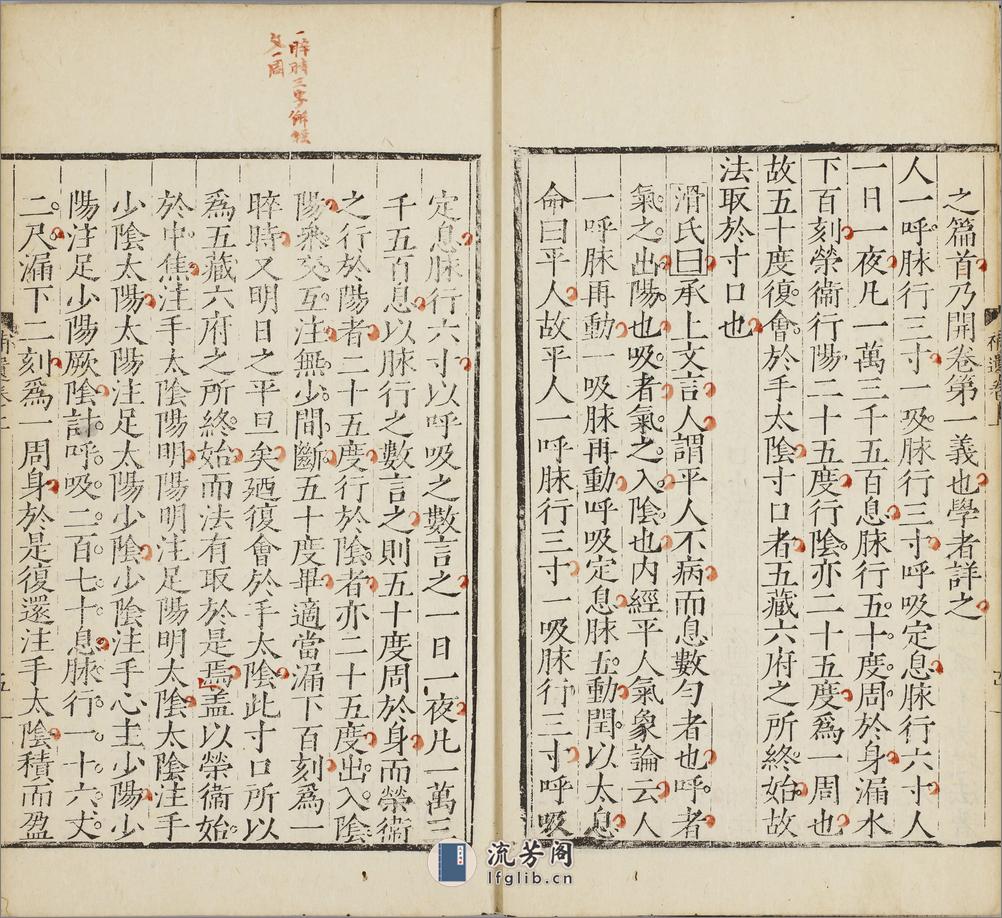 之篇首乃開卷第一義也學者詳之
人一呼脉行三寸一吸脉行三寸呼吸定息脉行六寸人
一日一夜凡一萬三千五百息脉行五十度周於身漏水
下百刻榮衞行陽二十五度行陰亦二十五度爲一周也
故五十度復會於手太陰寸口者五藏六府之所終始故
法取於寸口也
滑氏曰承上文言人謂平人不病而息數勻者也呼者
氣之出陽也吸者氣之入陰也内經平人氣象論云人
一呼脉再動一吸脉再動呼吸定息脉五動閏以太息
命曰平人故平人一呼脉行三寸一吸脉行三寸呼吸
定息脉行六寸以呼吸之數言之一日一夜凡一萬三
千五百息以脉行之數言之則五十度周於身而榮衞
之行於陽者二十五度行於陰者亦二十五度出入陰
陽參交互注無少間斷五十度畢適當漏下百刻爲一
晬時又明日之平旦矣廼復會於手太陰此寸口所以
爲五藏六府之所終始而法有取於是焉盖以榮衞始
於中焦注手太陰陽明陽明注足陽明太陰太陰注手
少陰太陽太陽注足太陽少陰少陰注手心主少陽少
陽注足少陽厥陰計呼吸二百七十息脉行一十六丈
二尺漏下二刻爲一周身於是復還注手太陰積而盈
一晬時三字解經
文一周
流芳阁
lfglib.cn